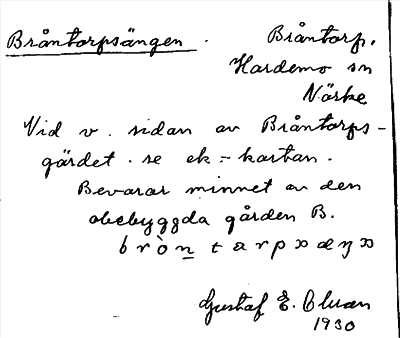 Bråntorpsängen. Bråntorp.
Hardemo sn
Närke
Vid v. sidan av Bråntorps-
gärdet. se ek-kartan.
Bevarar minnet av den
obebyggda gården B.
Gustaf E.
1930